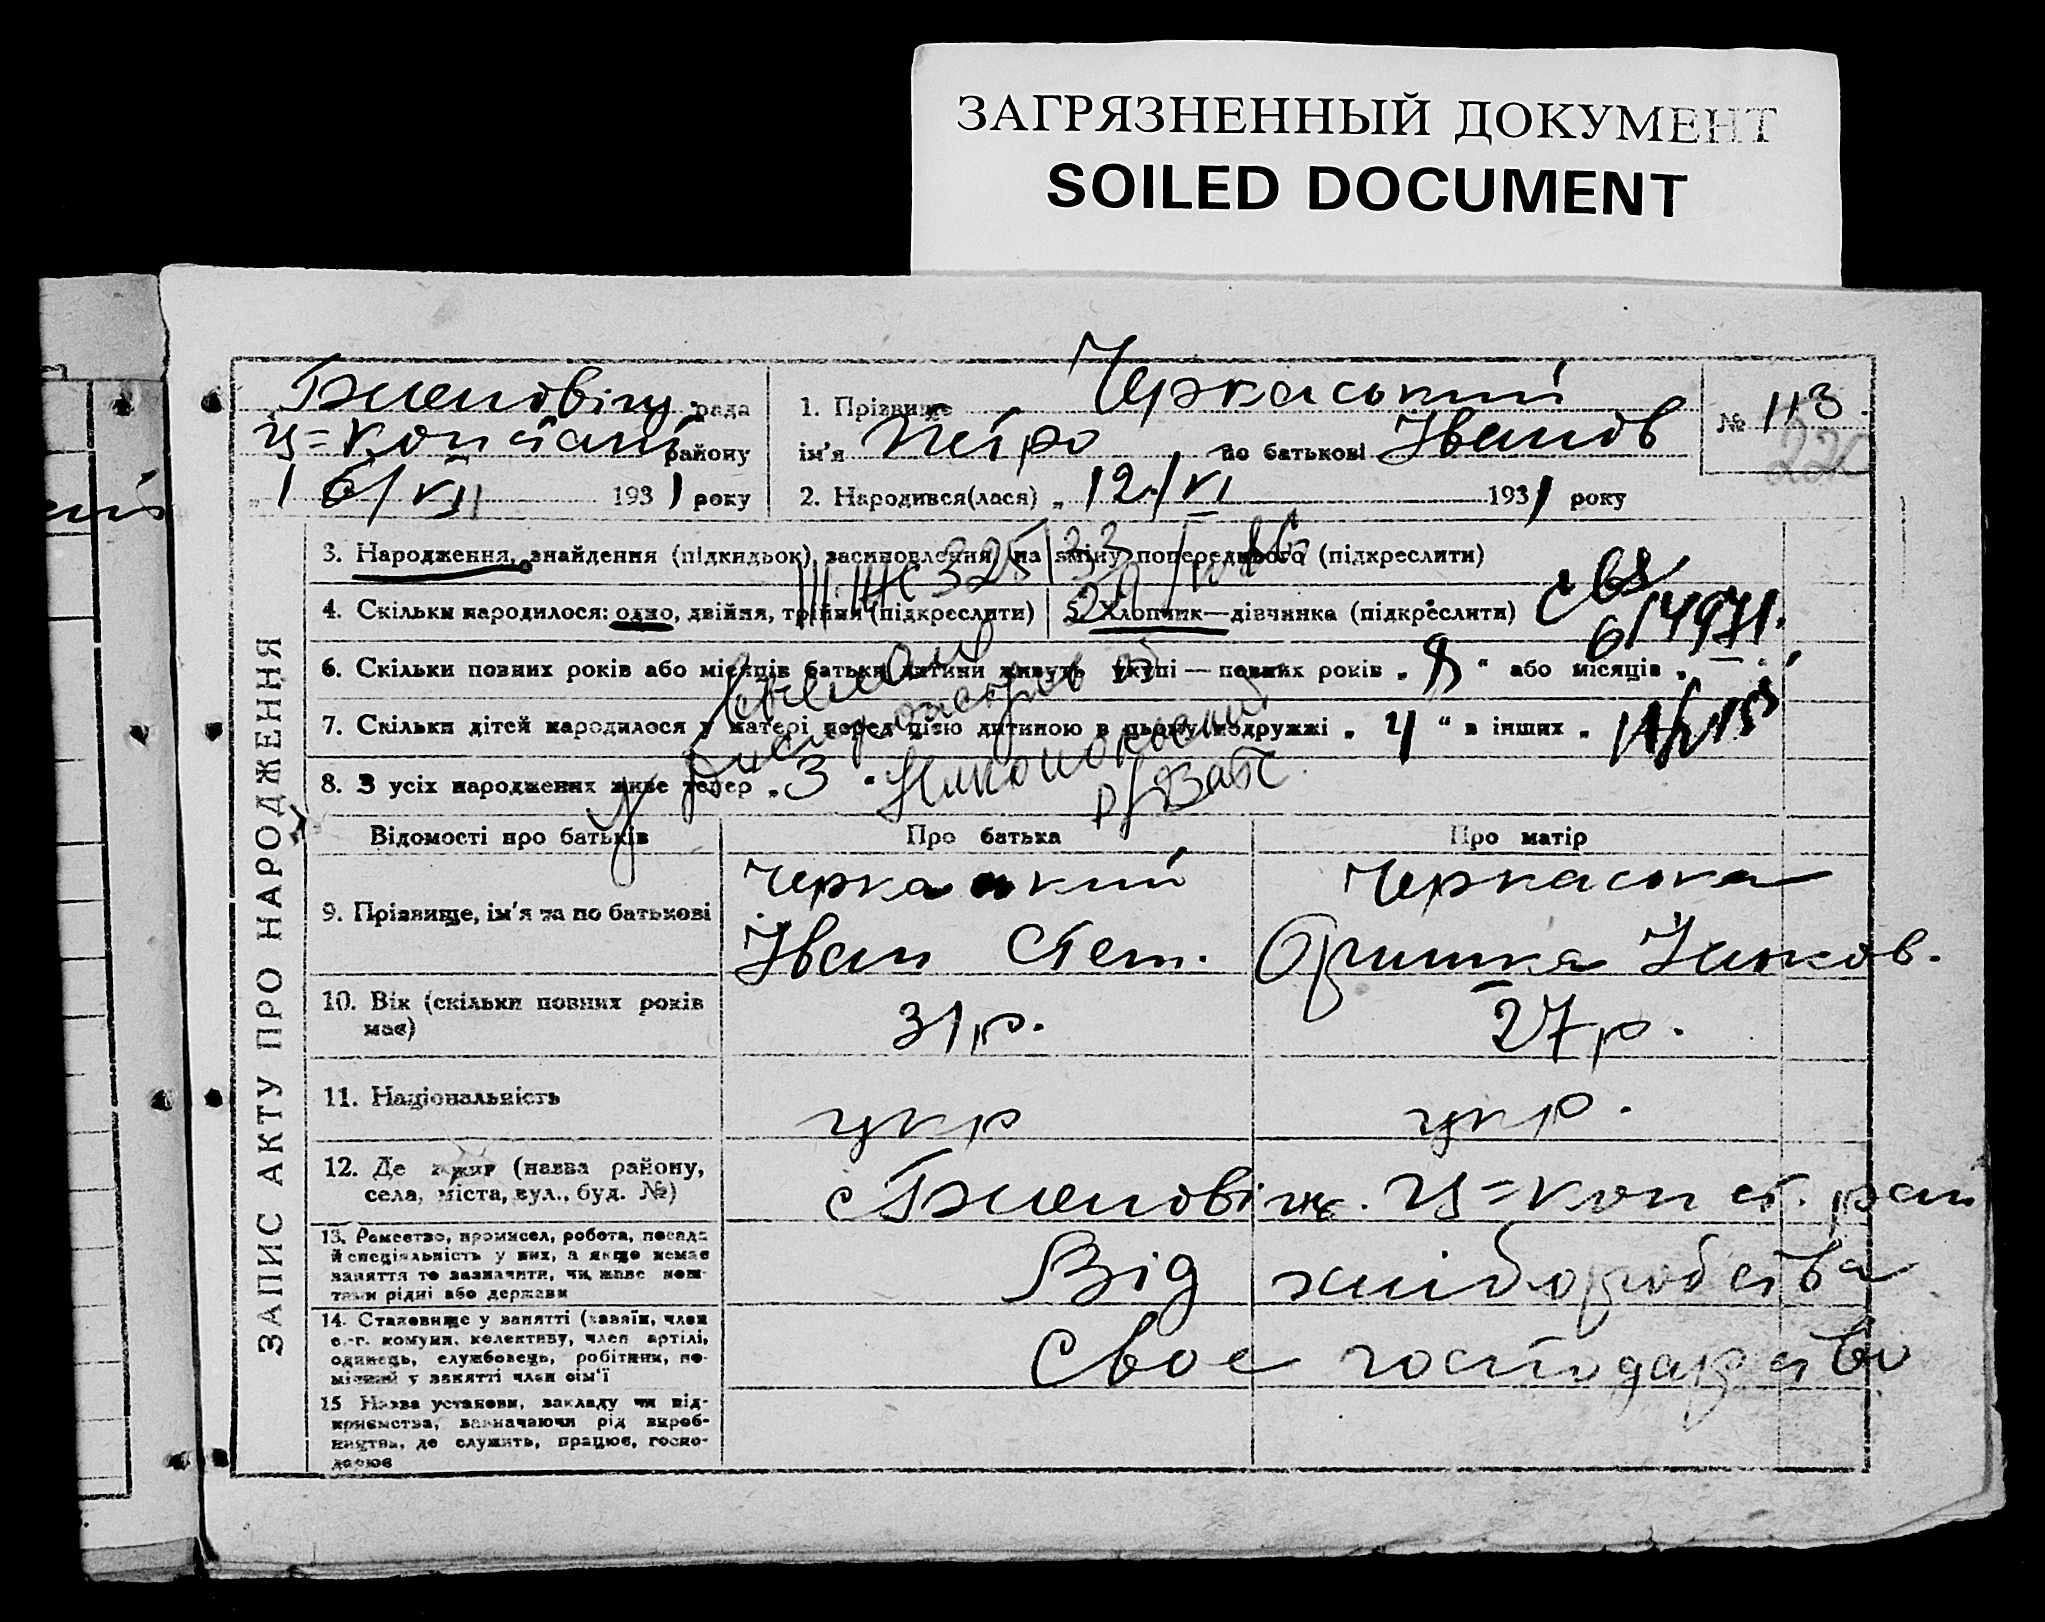 ЗАГРЯЗНЕННЫЙ ДОКУМЕНТ
SOILED DOCUMENT
рада
Ц=Конст районy
1 6/VII 1931 року
1. Прізвище Черкаський
ім'я Петро по батькові Іванов
2. Народився(лася) „ 12/VI 1931 року
№ 113
22
ЗАПИС АКТУ ПРО НАРОДЖЕННЯ
3. Народження, знайдення (підкидьок) засиновлення (на зміну попереднього (підкреслити)
III ЖС 325123
4. Скільки народилося: одно, двійня, трійня (підкреслити)
5. Хлопчик—дівчинка (підкреслити)
614971.
6. Скільки повних років або місяців батьки дитини живуть укупі — повних років „ 8 “ або місяців „ —
7. Скільки дітей народилося у матері перед цією дитиною в цьому подружжі „ 4 “ в інших „
8. З усіх народжених живе тепер „ 3 “
Відомості про батьків
Про батька
Про матір
9. Прізвище, ім'я та по батькові
Черкаський
Іван Степ.
Черкаська
Оришка
10. Вік (скільки повних років має)
31 р.
27 р.
11. Національність
укр
укр.
12. Де живе (назва району,
села, міста, вул., буд. №)
с Ц=Конст. рай
13. Ремество, промисел, робота, посада
й спеціяльність у них, а якщо немає
заняття то зазначити, чи живе кош-
тами рідні або держави
Від хліборобства
14. Становище у занятті (хазяїн, член
с.-г. комуни, колективу, член артілі,
одинець, службовець, робітник, по-
мічний у занятті член сім'ї
Своє господарство
15 Назва установи, закладу чи під-
приємства, зазначаючи рід вироб-
ництва, де служить, працює, госпо-
дарює